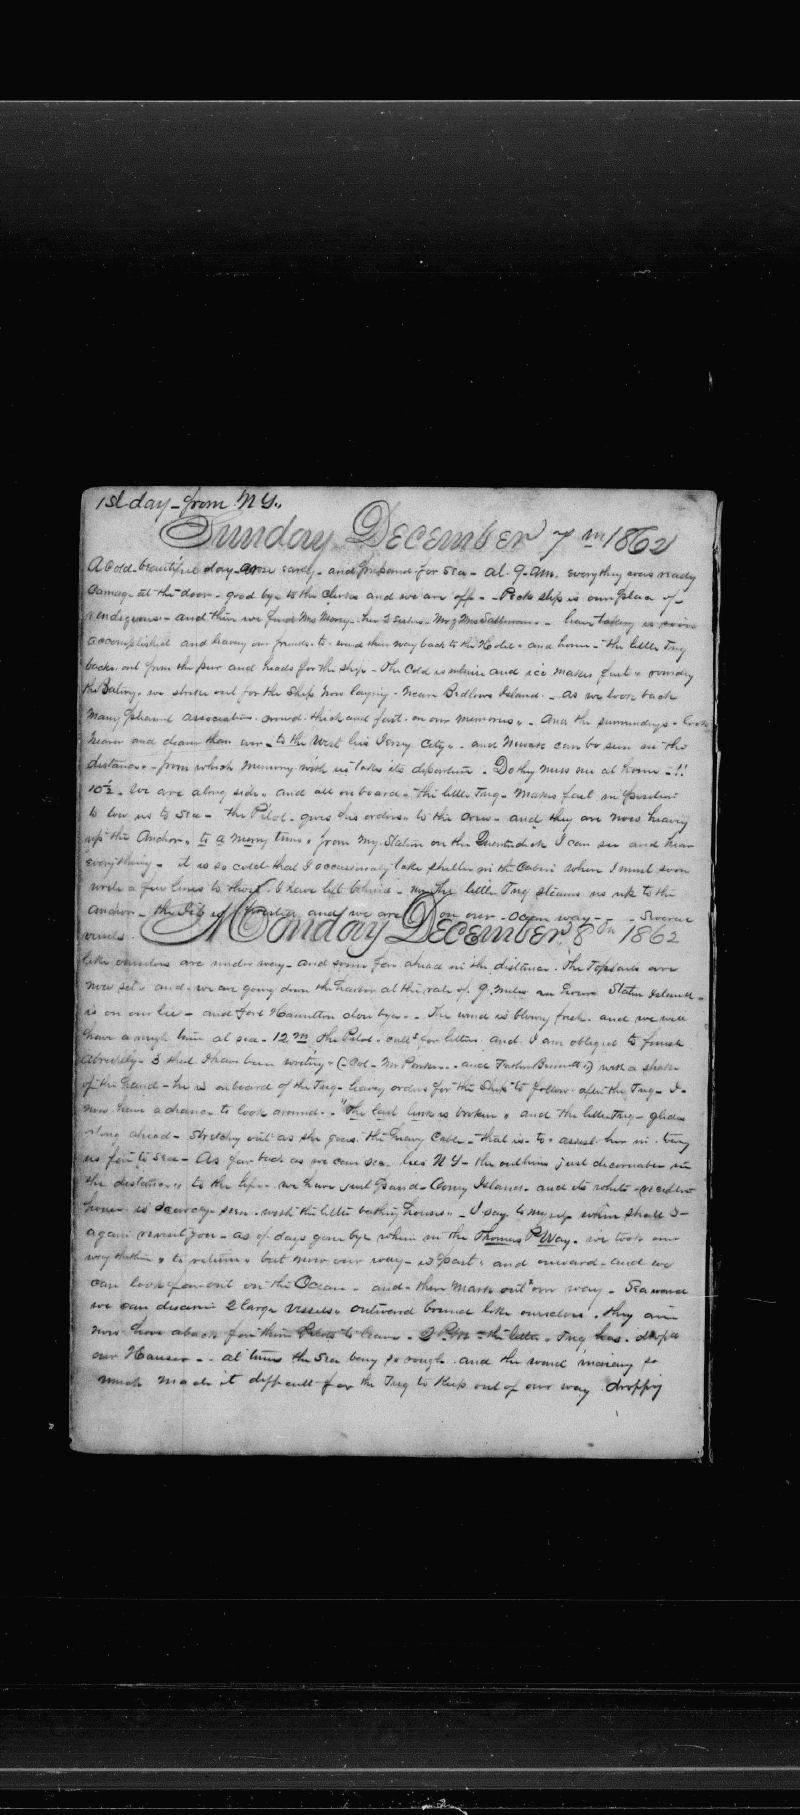 1st day - from N.Y.
Sunday December 7th 1862
A Cold beautiful day arose early - and prepared for Sea - at 9 Am. everything was ready
Carriage at the door - good bye to the and we are off - Peck slip is our place of
rendezvous - and there we find Mrs Merry her 2 Sisters Mr & Mrs - leave taking is soon
accomplished and leaving our friends to wend their way back to the Hotel and home - the little Tug
backs out from the pier and heads for the ship - The Cold is intense and ice makes fast rounding
the Battery we strike out for the Ship now laying Near Bedlows Island - As we look back
Many pleasant associations crowd thick and fast on our memories - And the surroundings look
nearer and dearer than ever - to the West lies Jersey City - and Newark can be seen in the
distance - from which memory with us takes its departure - Do they miss me at home - !!
10½ - We are along side and all on board - the little Tug makes fast in position
to tow us to Sea - the Pilot gives his orders to the Crew - and they are now heaving
up the Anchor to a Merry tune from my Station on the Quarterdeck I can see and hear
everything - it is so cold that I occasionally take shelter in the Cabin where I must soon
write a few lines to those I have left behind - the little Tug steams us up to the
Anchor - the Jib is and we are on our Ocean way - - Several
Monday December 8th 1862
vessels
like ourselves are under way - and some far ahead in the distance. The Topsails are
now set and we are going down the harbor at the rate of 9 miles an hour Staten Island
is on our lee - and Fort Hamilton close bye - The wind is blowing fresh and we will
have a rough time at sea - 12 M the Pilot calls for letters and I am obliged to finish
Abruptly - 3 that I have been writing (Col - Mr and ) with a shake
of the hand - he is onboard of the Tug - leaving orders for the Ship to follow after the Tug - I
now have a chance to look around - "The last link is broken" and the little Tug - glides
along ahead - Stretching out as she goes the heavy Cable - that is to assist her in
us far to Sea - As far back as we can see lies N Y - the outlines just discernable in
the distance to the left we have just passed - Coney Island - and its white
house is scarcely seen with the little bathing houses - I say to myself when shall I -
again revisit you - as of days gone bye when in the Thomas P Way. we took our
way thither to return but now our way is past and onward and we
can look far out on the Ocean - and there mark out our way - Seaward
we can discern 2 large vessels outward bound like ourselves, they are
now hove aback for their Pilots to leave - 2 P.M - the little Tug has dropd
our Hauser - at times the Sea being so rough and the wind so
much made it difficult for the Tug to keep out of our way dropping